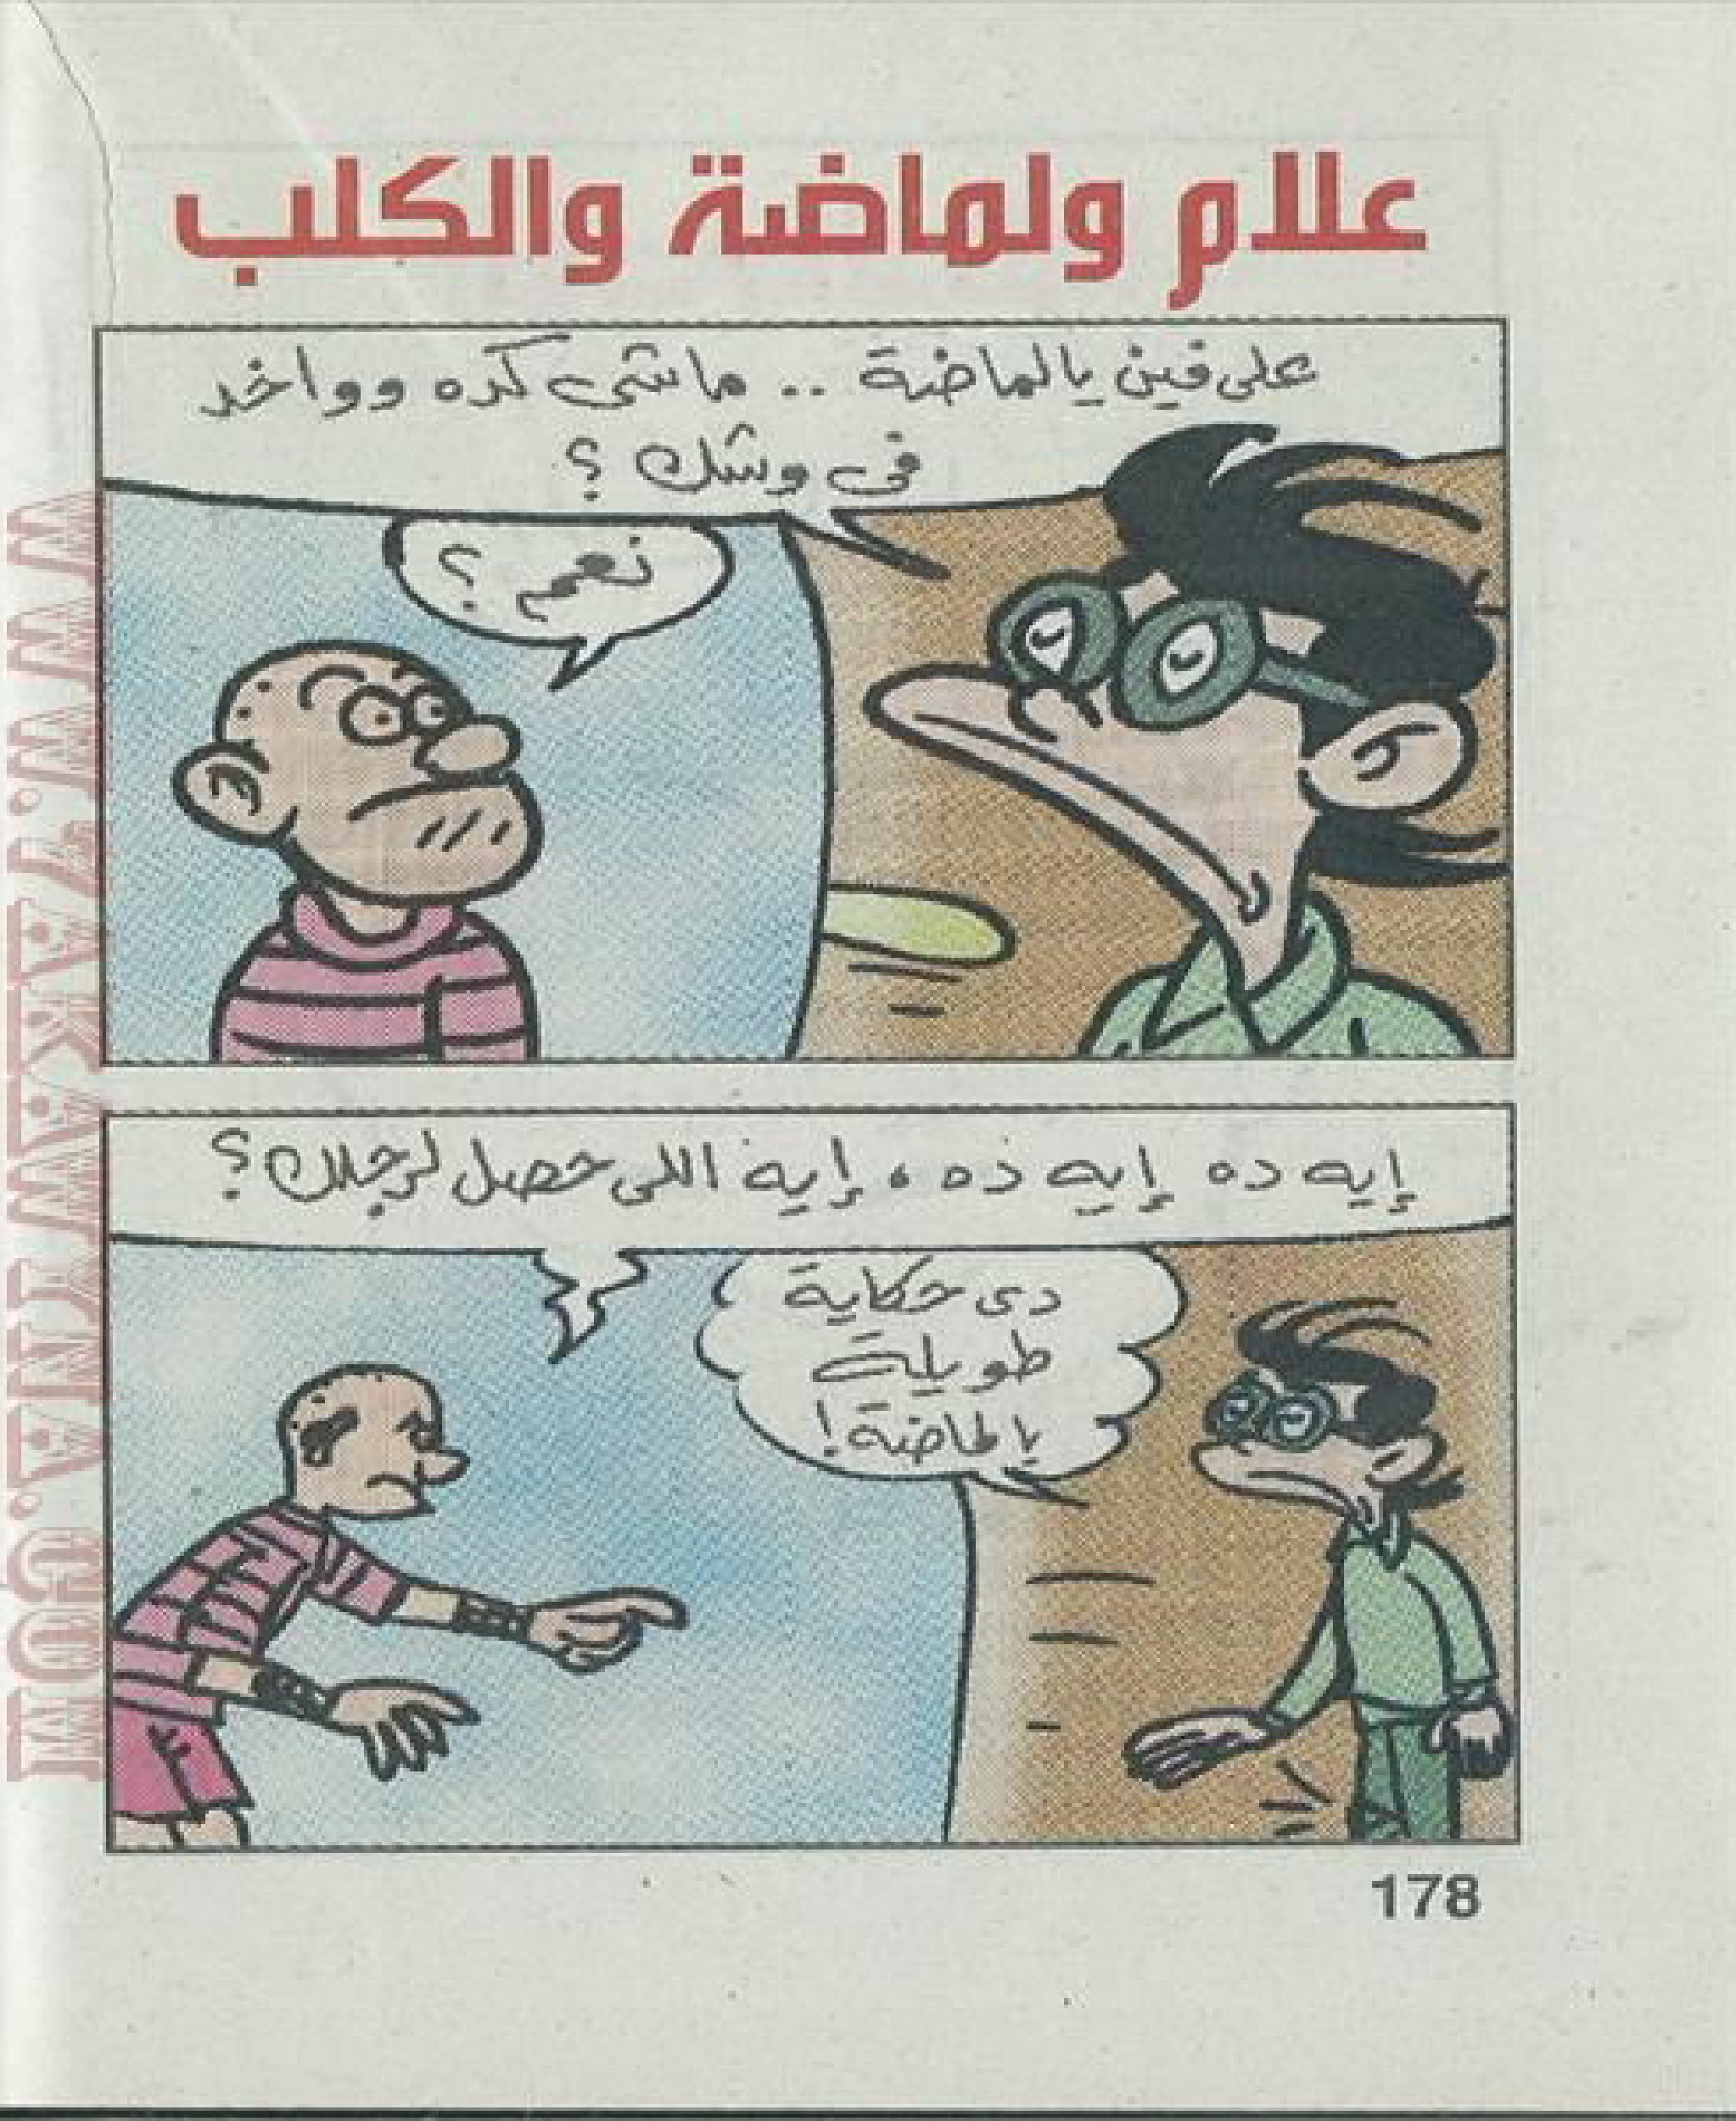 علام ولماضة والكلب
على فين يالماضة .. ماشى كده وواخد
فى وشك ؟
نعم ؟
إيه ده إيه ده ، إيه اللى حصل لرجلك ؟
دى حكاية
طويلة
يالماضة !
178
WWW.TAKAWINEA.COM